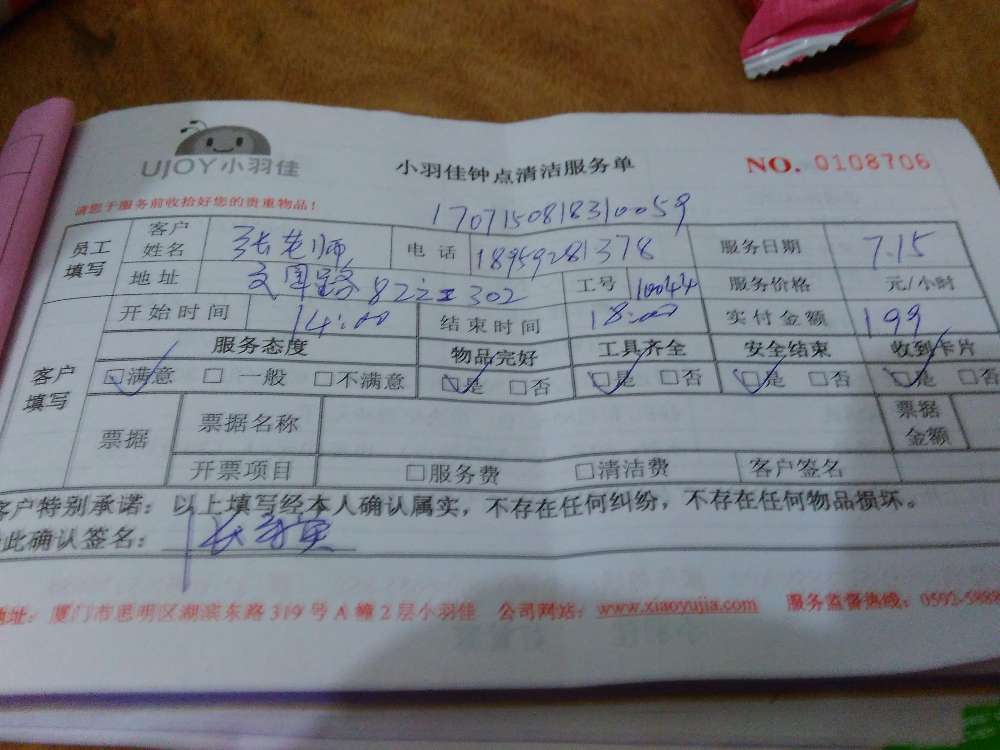 UJOY小羽佳
小羽佳钟点清洁服务单
NO. 0108706
请您于服务前收拾好您的贵重物品！
1707150818310059
员工填写 客户姓名 张老师 电话 18959281378 服务日期 7.15
地址 文园路82之 302 工号 10044 服务价格 元/小时
开始时间 14:00 结束时间 18:00 实付金额 199
客户填写 服务态度 物品完好 工具齐全 安全结束 收到卡片
☑满意 □一般 □不满意 ☑是 □否 ☑是 □否 ☑是 □否 ☑是 □否
票据 票据名称 票据金额
开票项目 □服务费 □清洁费 客户签名
客户特别承诺：以上填写经本人确认属实，不存在任何纠纷，不存在任何物品损坏。
此确认签名：张
地址：厦门市思明区湖滨东路319号A幢2层小羽佳 公司网站：www.xiaoyujia.com 服务监督热线：0592-5888